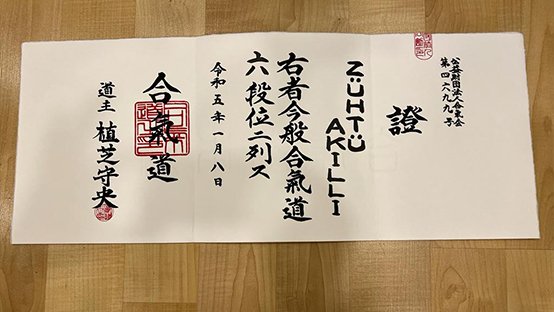 公益財団法人合気会
第四六九九号
證
ZÜHTÜ
AKILLI
右者今般合氣道
六段位二列ス
令和五年一月八日
合氣道
道主 植芝守央